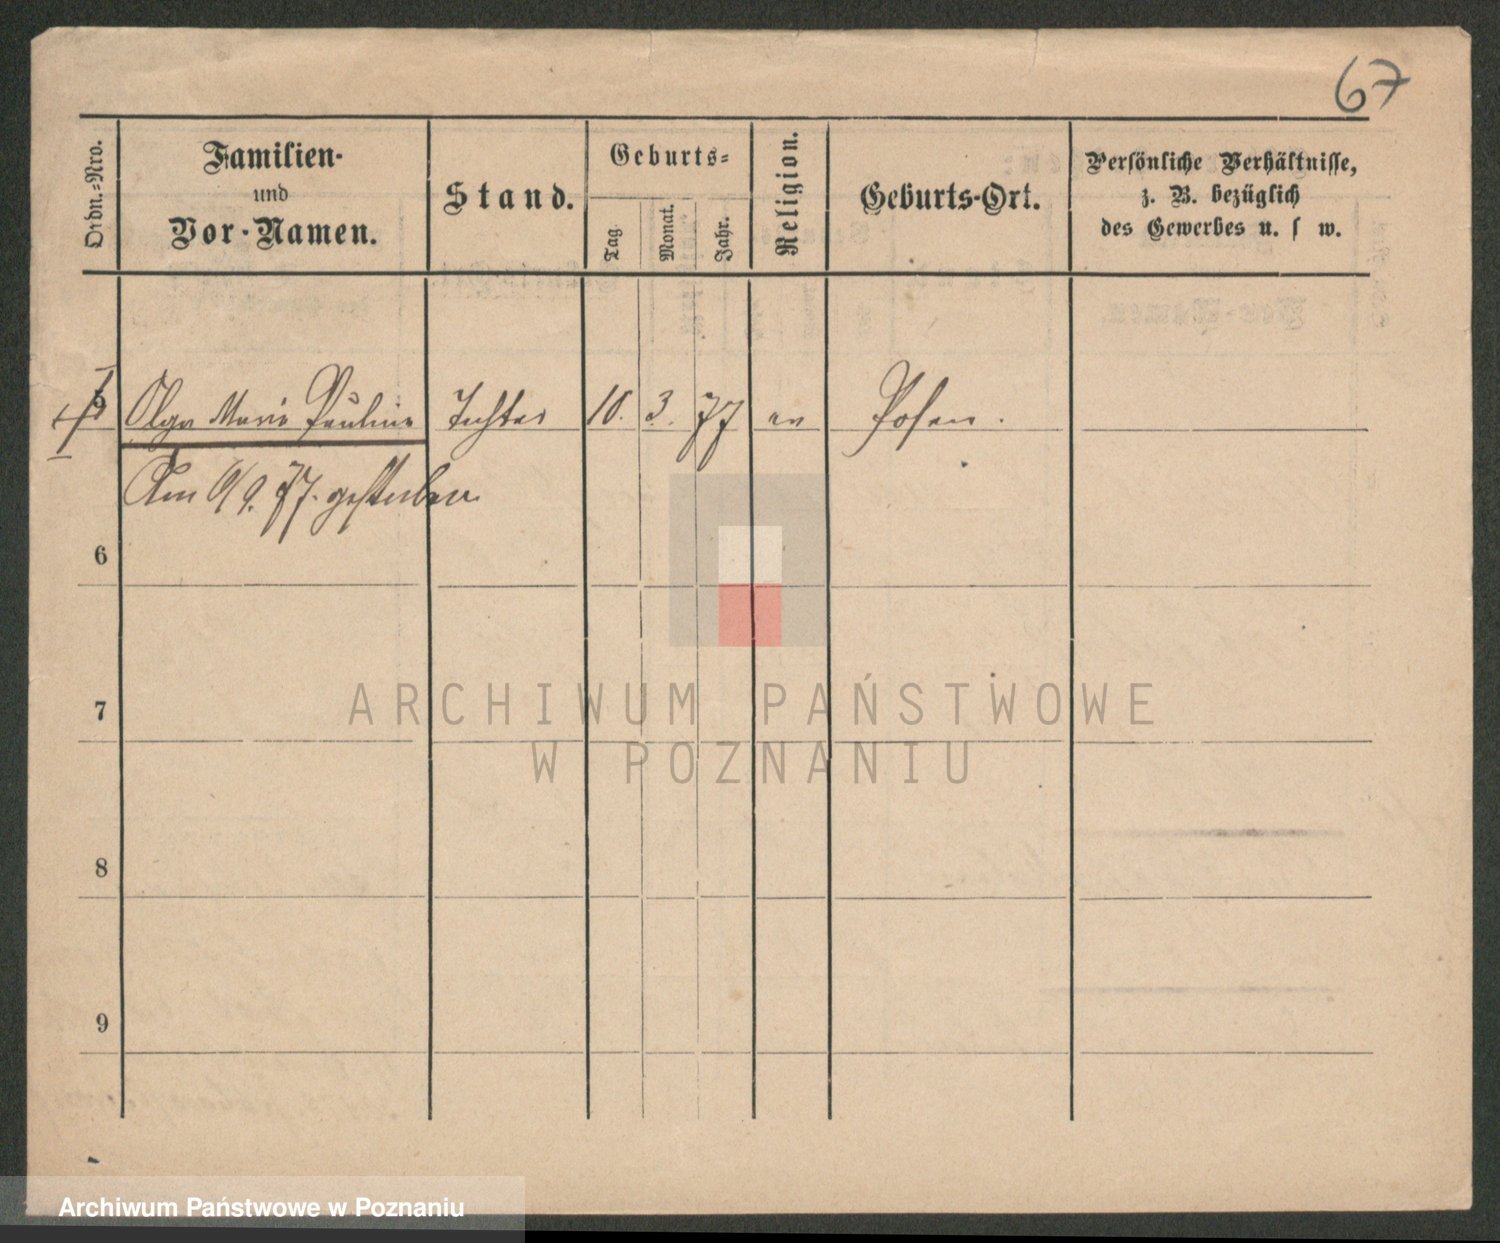 67
Ordn.-Nro.
Familien-
und
Vor-Namen.
Stand.
Geburts-
Tag.
Monat.
Jahr.
Religion.
Geburts-Ort.
Persönliche Verhältnisse,
z. B. bezüglich
des Gewerbes u. s w.
5 Olga Marie Pauline Tochter 10. 3. 77 ev Posen.
Am 6/9. 77. gestorben
6
7
8
9
ARCHIWUM PAŃSTWOWE
W POZNANIU
Archiwum Państwowe w Poznaniu